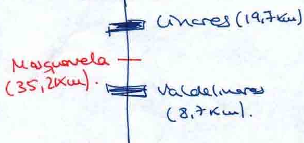 Linares (19,7 Km)
Mosqueruela
(35,2 Km).
Valdelinares
(8,7 Km).